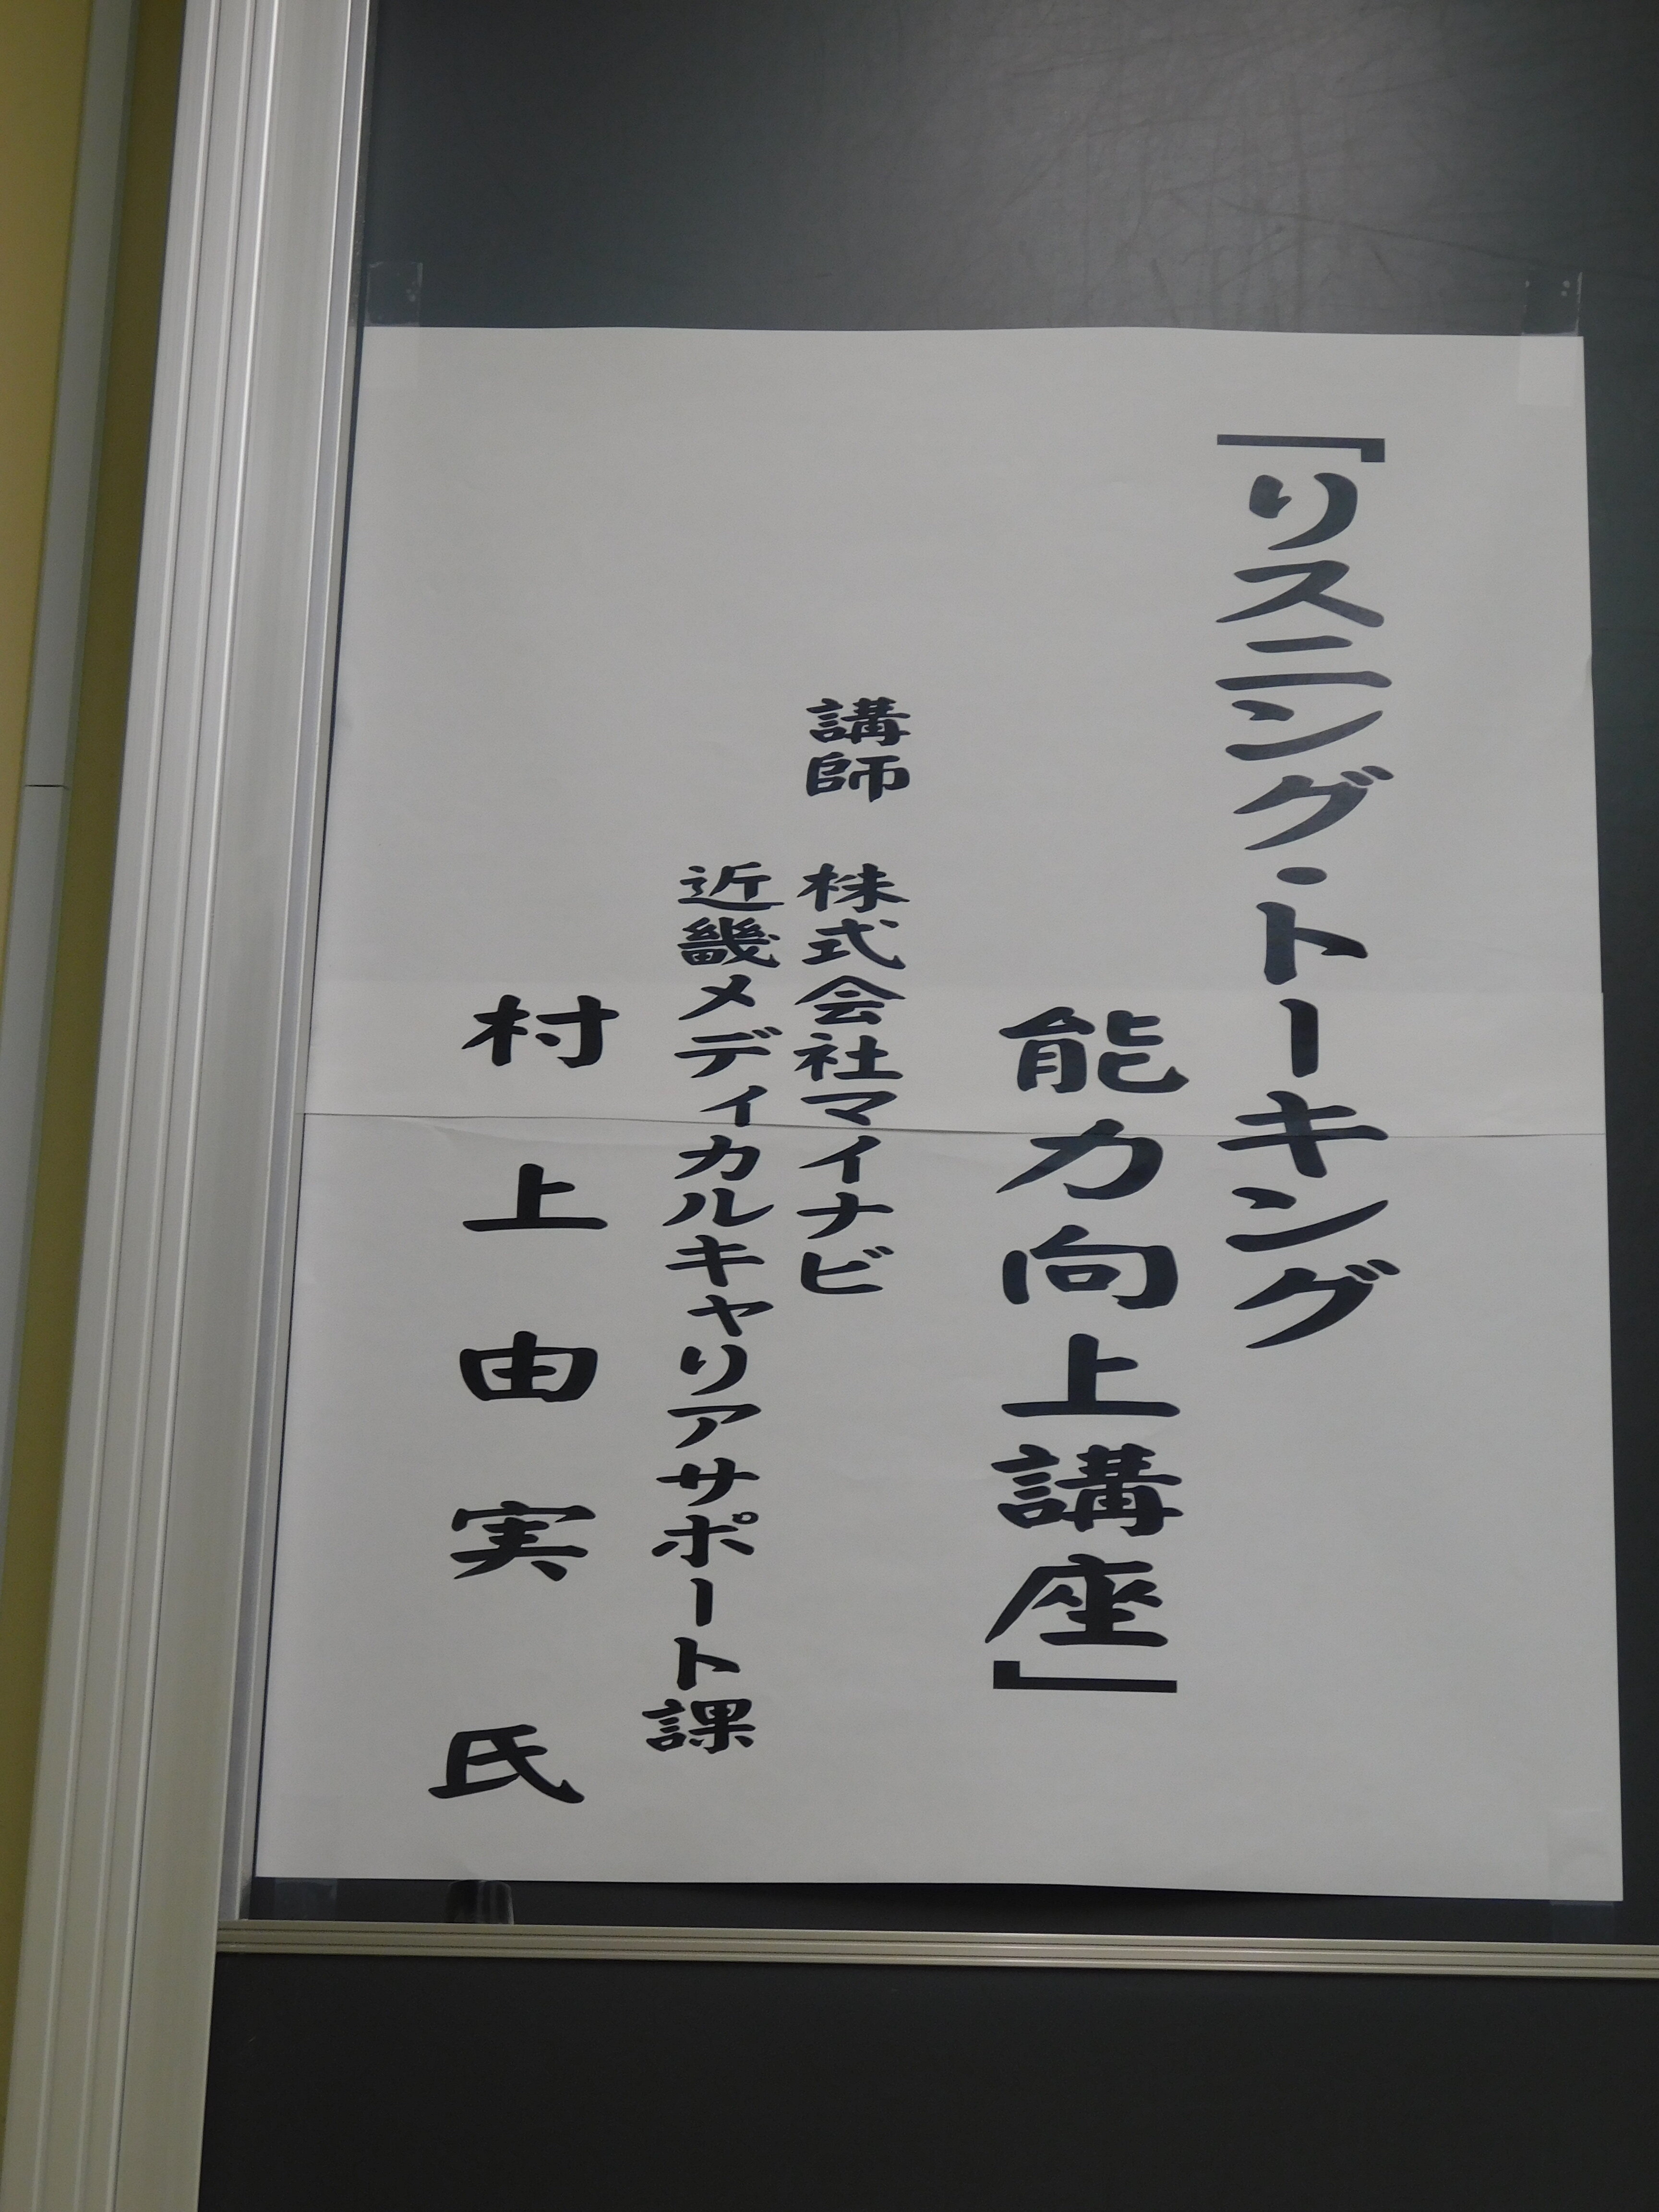 「リスニング・トーキング
能力向上講座」
講師　株式会社マイナビ
近畿メディカルキャリアサポート課
村上由実氏